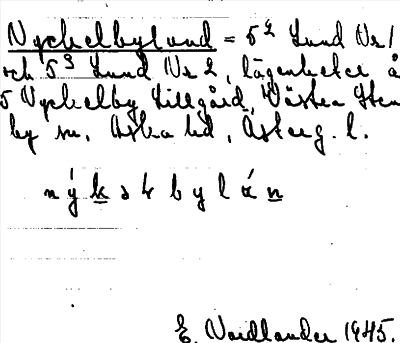 Nyckelbylund = 5² Lund Nr 1
och 5³ Lund Nr 2, lägenheter å
5 Nyckelby Lillgård, Västra Sten
by sn, Aska hd, Österg. l.
n ý k ə l b y l á n
E. Nordlander 1945.